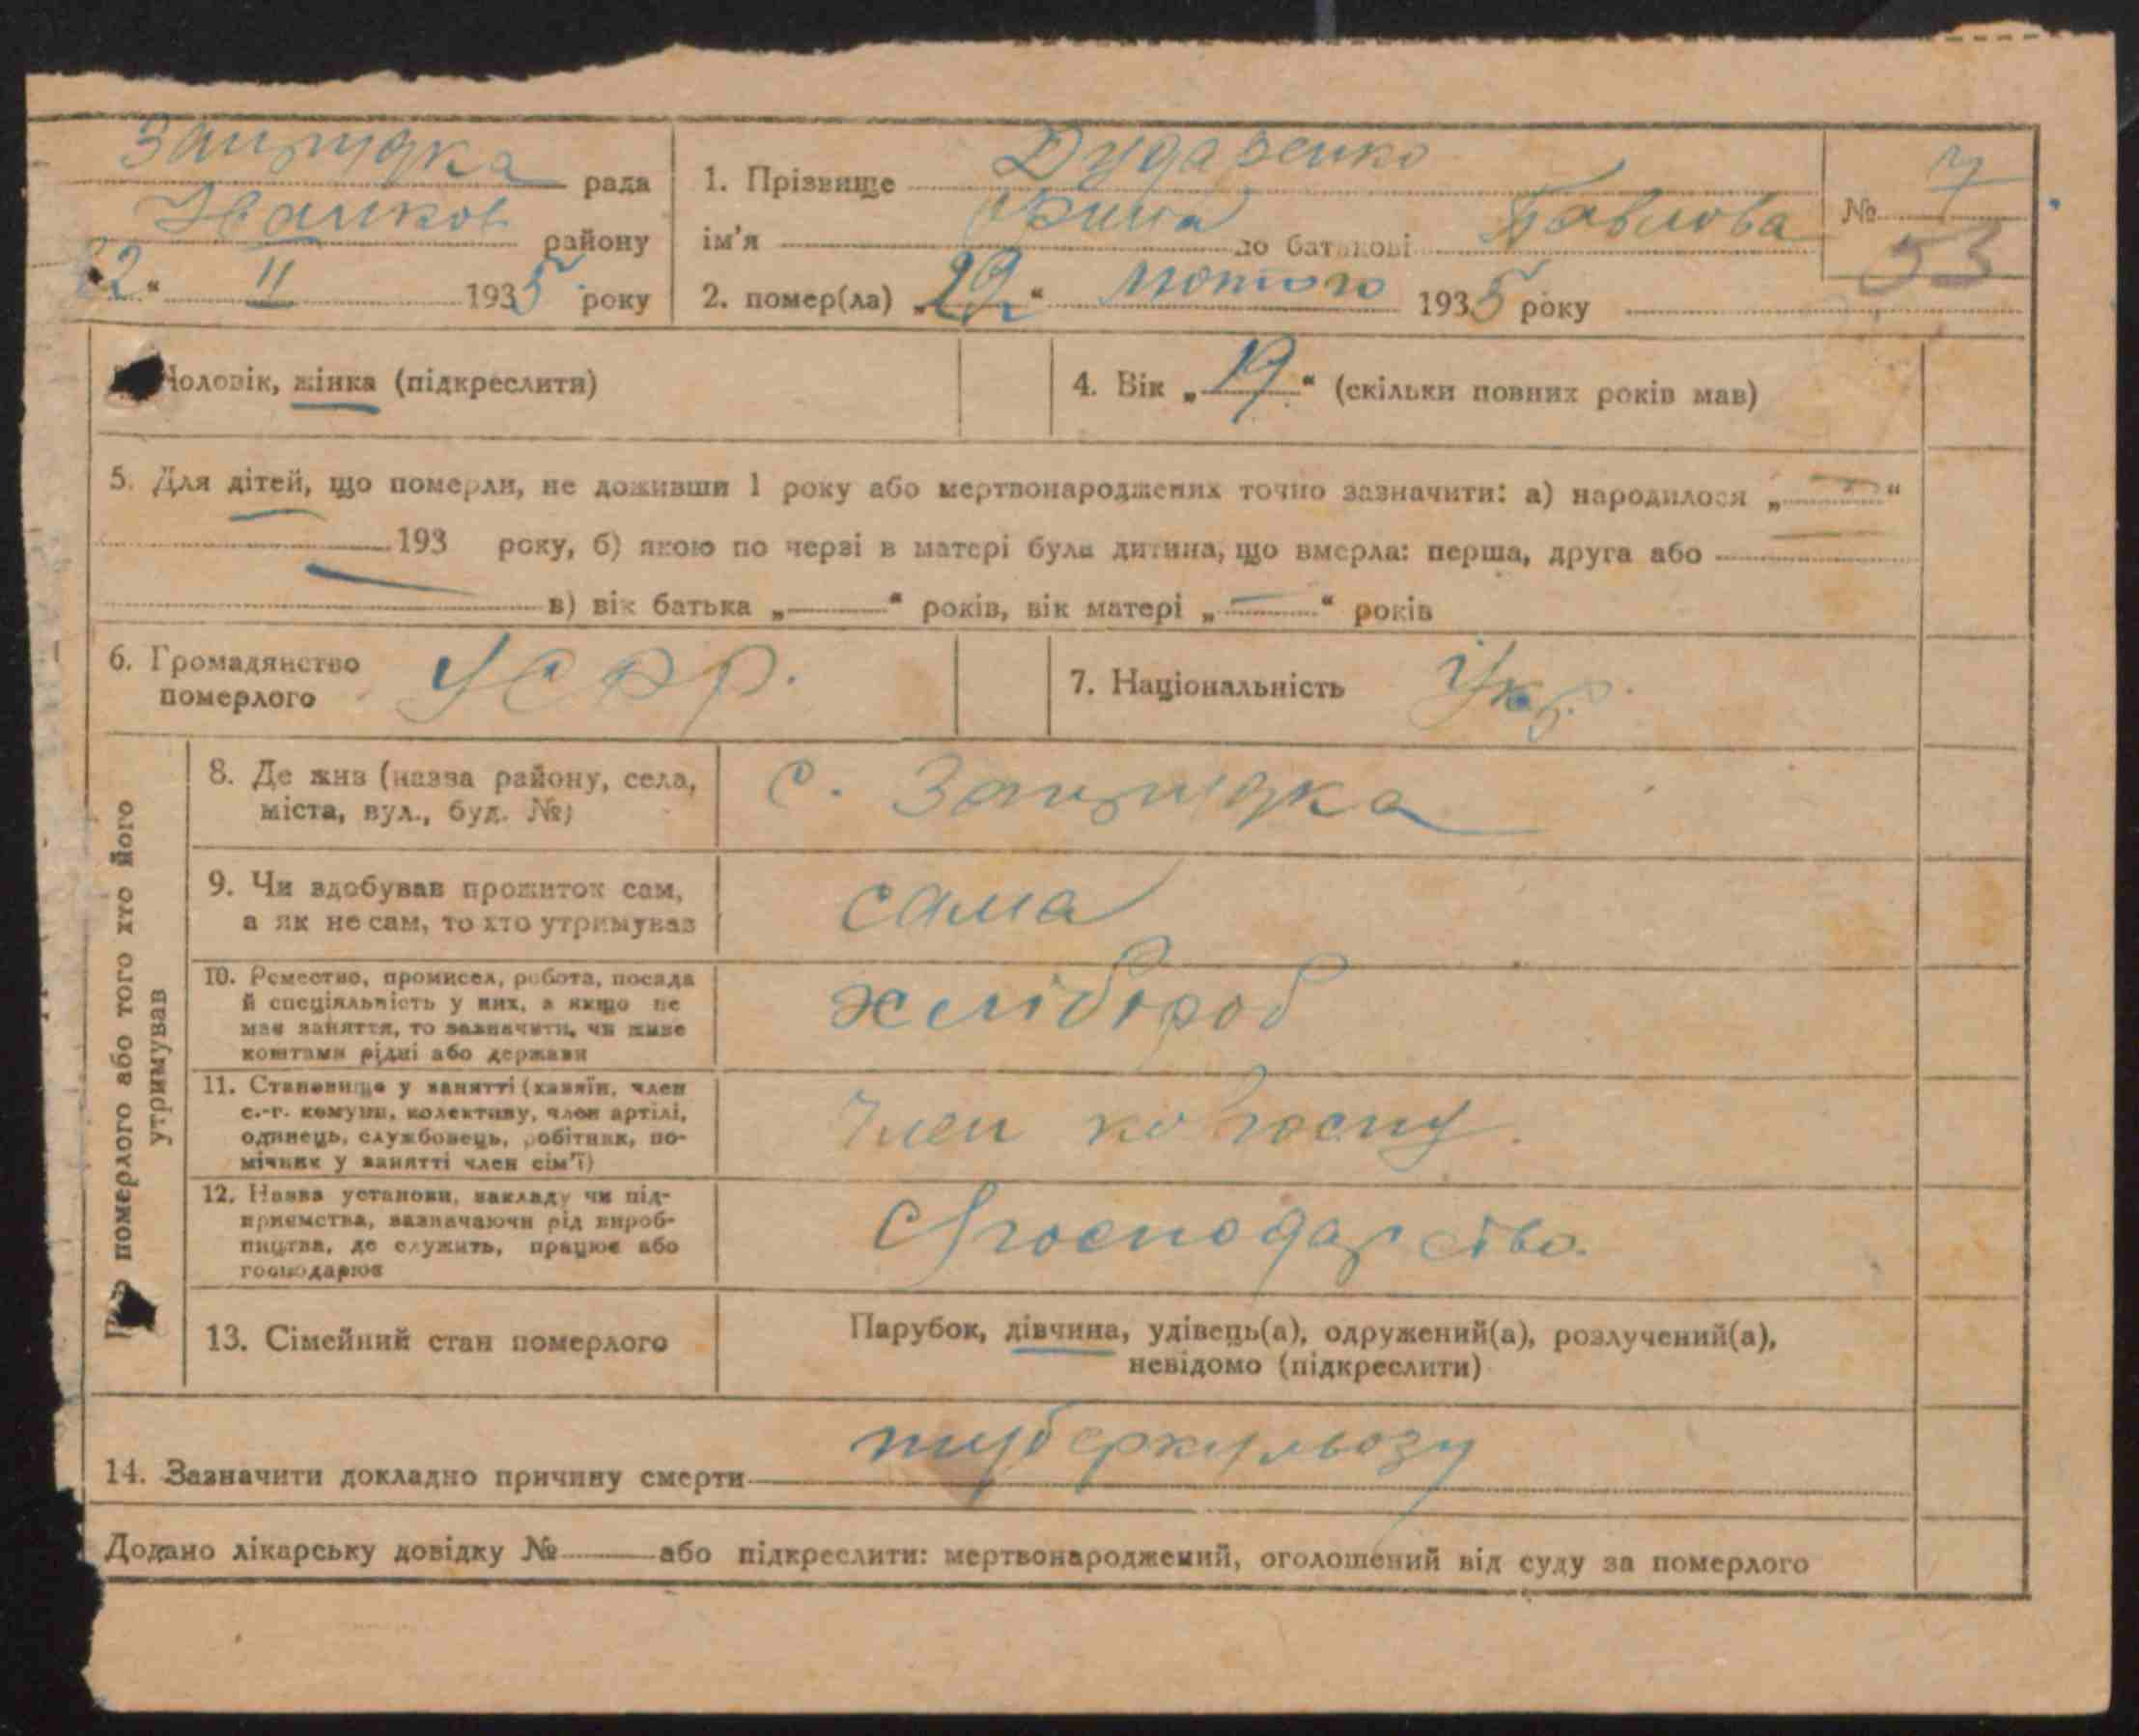 Запрудка рада
Іванков району
22 " II 1935 року
1. Прізвище Дударенко
ім'я Орина по батькові Павлова
2. помер(ла) „ " лютого 1935 року
№ 7
53
Чоловік, жінка (підкреслити)
4. Вік „19" (скільки повних років мав)
5. Для дітей, що померли, не доживши 1 року або мертвонароджених точно зазначити: а) народилося „ — "
193 року, б) якою по черзі в матері була дитина, що вмерла: перша, друга або
в) вік батька „ — " років, вік матері „ — " років
6. Громадянство
померлого УСРР.
7. Національність Укр.
померлого або того хто його
утримував
8. Де жив (назва району, села,
міста, вул., буд. №) с. Запрудка
9. Чи здобував прожиток сам,
а як не сам, то хто утримував сама
10. Ремество, промисел, робота, посада
й спеціяльність у них, а якщо не
мав заняття, то зазначити, чи живе
коштами рідні або держави хлібороб
11. Становище у занятті (хазяїн, член
с.-г. комуни, колективу, член артілі,
одинець, службовець, робітник, по-
мічник у занятті член сім'ї) Член колгоспу.
12. Назва установи, закладу чи під-
приємства, зазначаючи рід вироб-
ництва, де служить, працює або
господарює Сгосподарство.
13. Сімейний стан померлого
Парубок, дівчина, удівець(а), одружений(а), розлучений(а),
невідомо (підкреслити)
14. Зазначити докладно причину смерти туберкульозу
Додано лікарську довідку № — або підкреслити: мертвонароджений, оголошений від суду за померлого